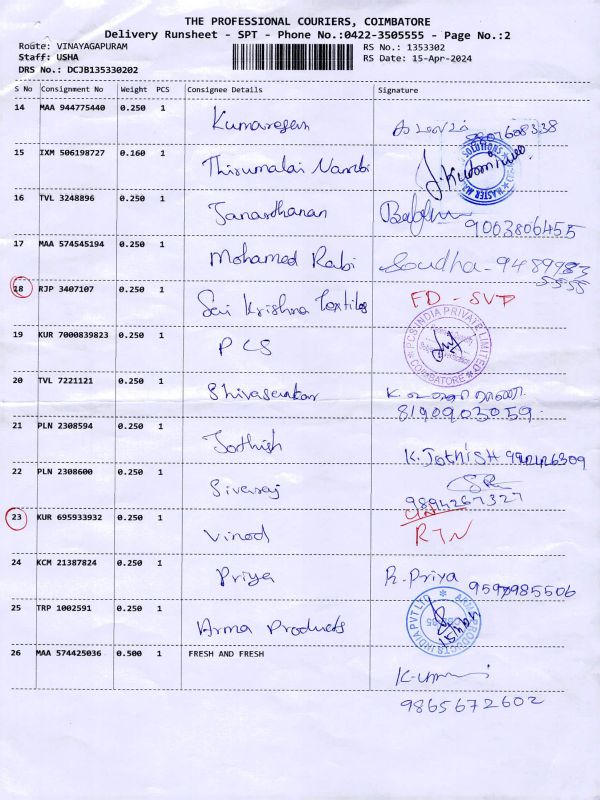 THE PROFESSIONAL COURIERS, COIMBATORE
Delivery Runsheet - SPT - Phone No.:0422-3505555 - Page No.:2
Route: VINAYAGAPURAM RS No.: 1353302
Staff: USHA RS Date: 15-Apr-2024
DRS No.: DCJB135330202
S No Consignment No Weight PCS Consignee Details Signature
14 MAA 944775440 0.250 1 Kumaresan
15 IXM 506198727 0.160 1 Thirumalai Nambi
16 TVL 3248896 0.250 1 Janardhanan 9003806455
17 MAA 574545194 0.250 1 Mohamed Rabi Soudha
18 RJP 3407107 0.250 1 Sai Krishna Textiles FD - SVP
19 KUR 7000839823 0.250 1 PCS PCS INDIA PRIVATE LIMITED COIMBATORE
20 TVL 7221121 0.250 1 Shivasankar 8190903059
21 PLN 2308594 0.250 1 Jothish K. Jothish
22 PLN 2308600 0.250 1 Sivaraj 9894267327
23 KUR 695933932 0.250 1 Vinod RTN
24 KCM 21387824 0.250 1 Priya R. Priya
25 TRP 1002591 0.250 1 Arma Products ARMA PRODUCTS INDIA PVT LTD
26 MAA 574425036 0.500 1 FRESH AND FRESH
9865672602